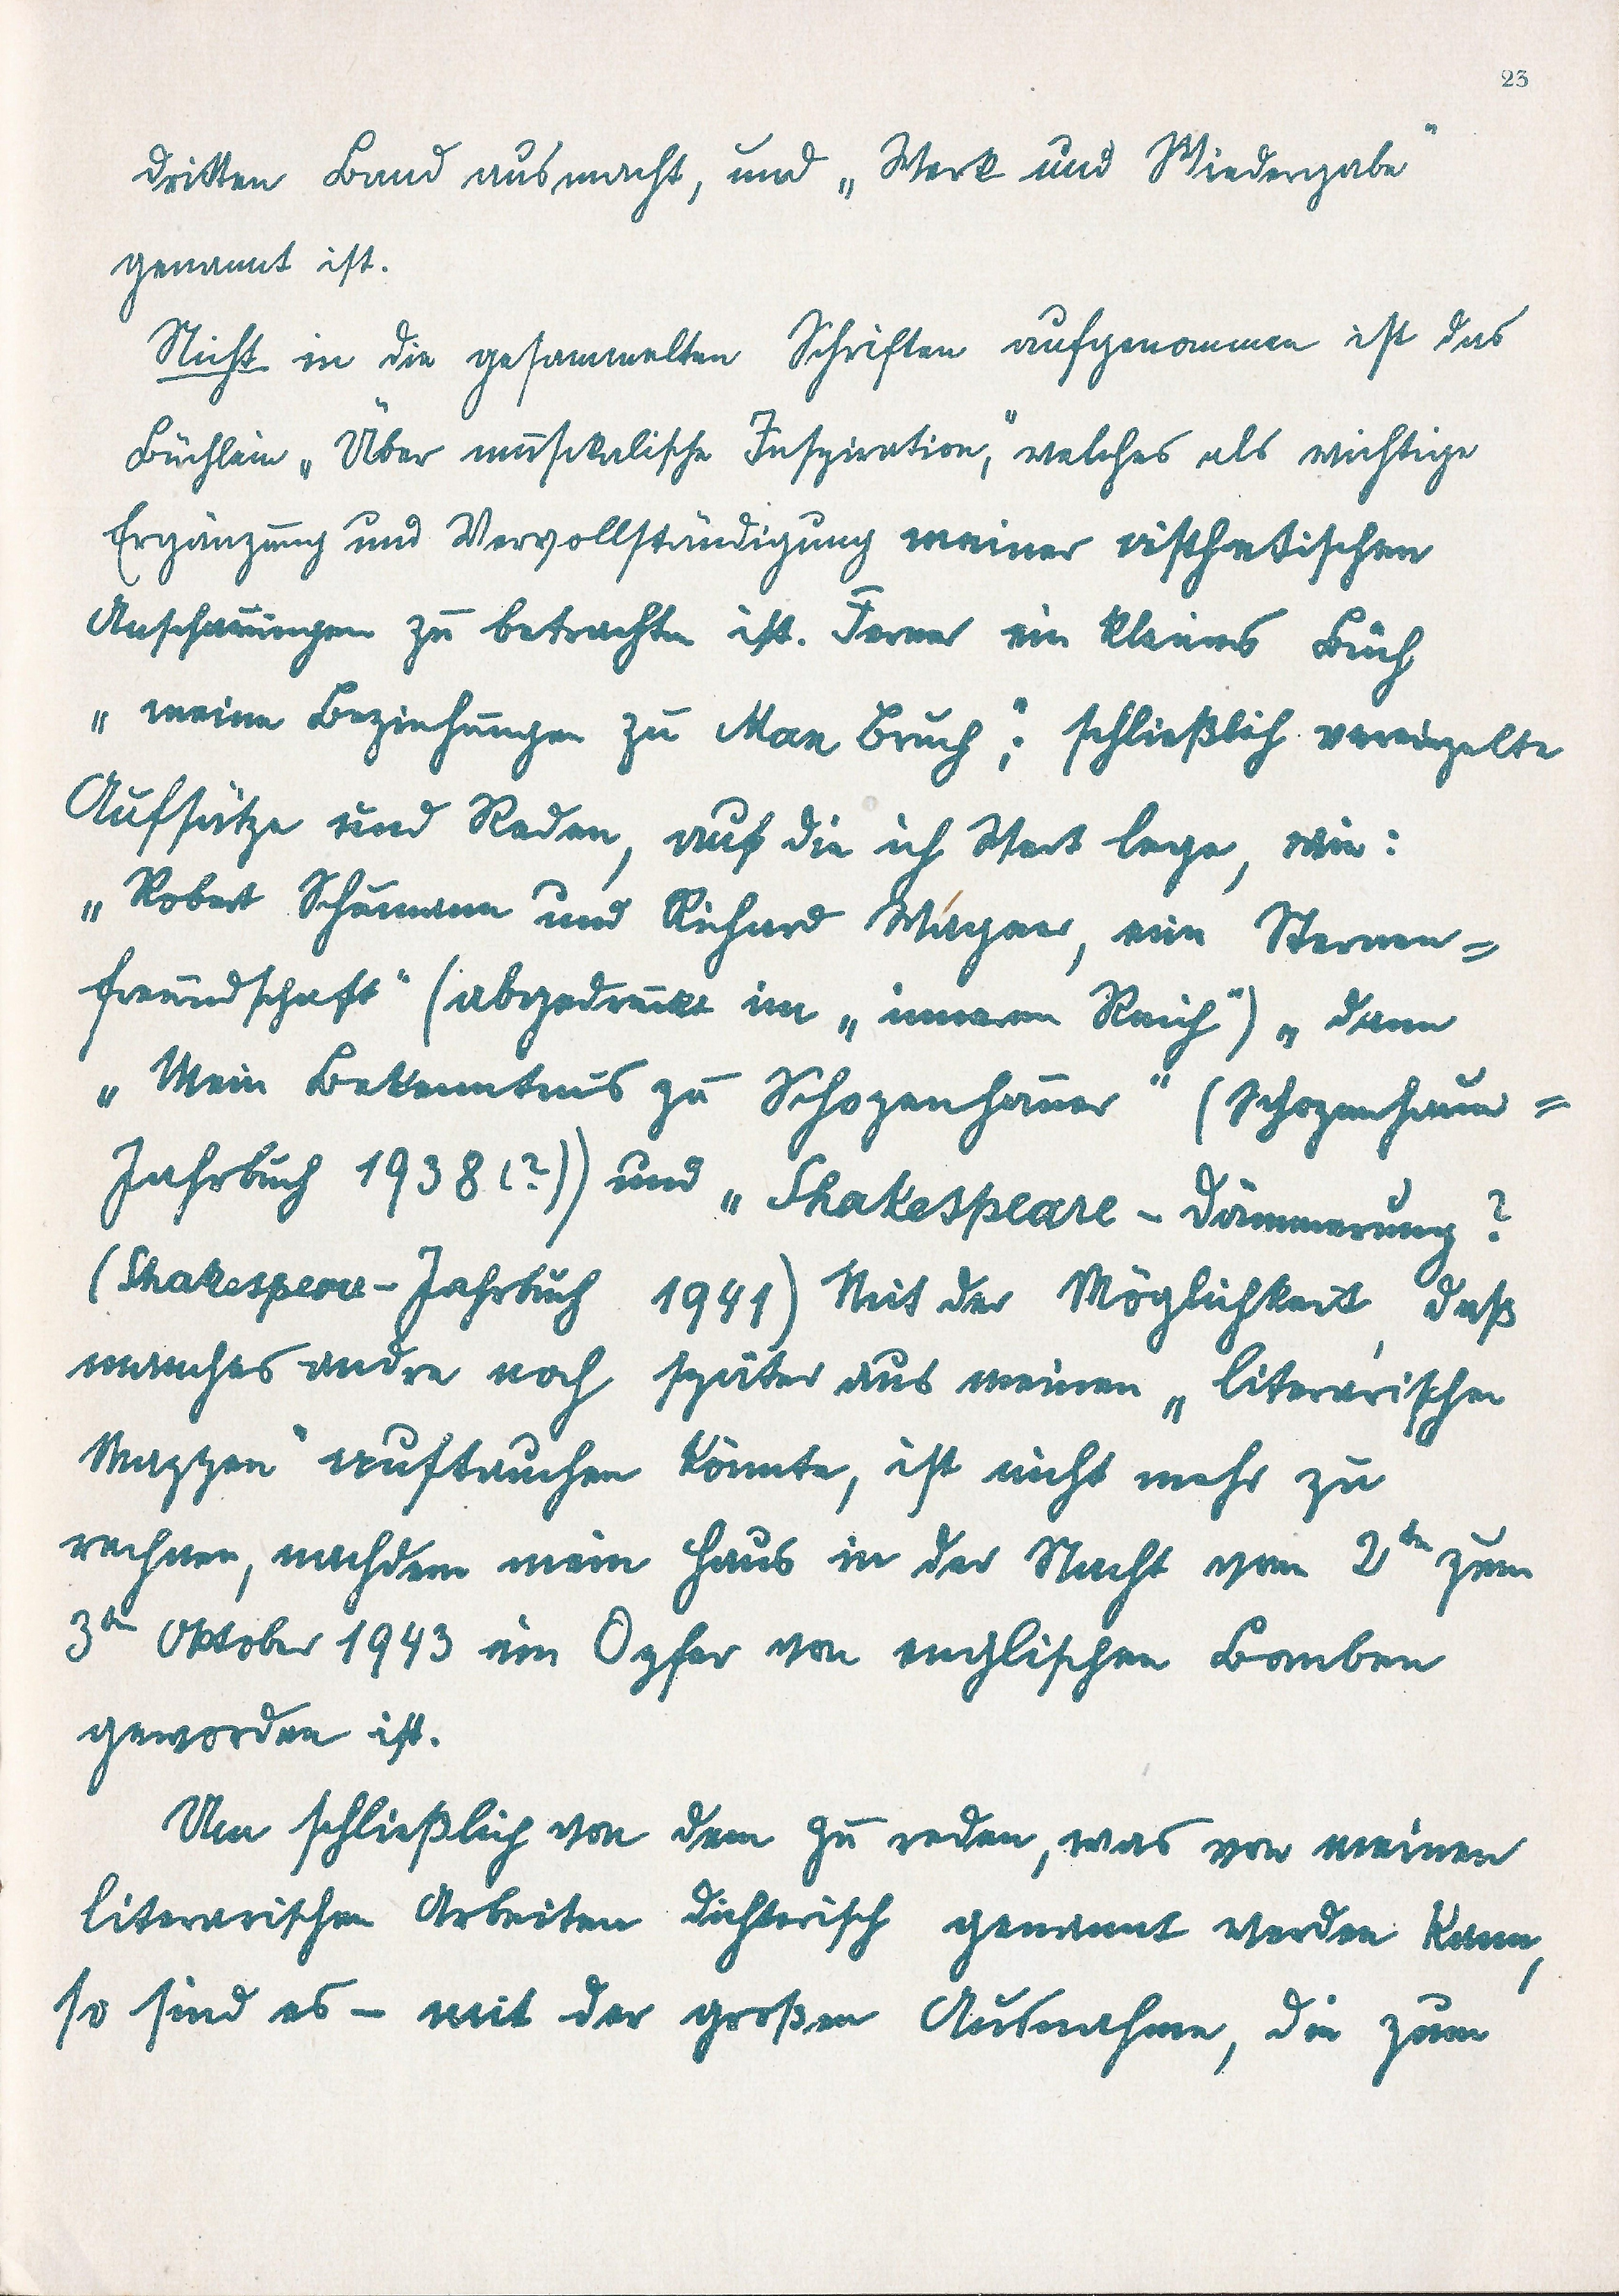 23
dritten Band ausmacht, und „Werk und Wiedergabe“
genannt ist.
Nicht in die gesammelten Schriften aufgenommen ist das
Büchlein „Über musikalische Inspiration,“ welches als wichtige
Ergänzung und Vervollständigung meiner ästhetischen
Anschauungen zu betrachten ist. Ferner ein kleines Buch
„meine Beziehungen zu Max Bruch“; schließlich vereinzelte
Aufsätze und Reden, auf die ich Wert lege, wie:
„Robert Schumann und Richard Wagner, eine Sternen=
freundschaft“ (abgedruckt im „inneren Reich“) „ dann
„Mein Bekenntnis zu Schopenhauer“ (Schopenhauer=
Jahrbuch 1938(?)) und „Shakespeare-Dämmerung?
(Shakespeare-Jahrbuch 1941) Mit der Möglichkeit, daß
manches andre noch später aus meinen „literarischen
Mappen“ auftauchen könnte, ist nicht mehr zu
rechnen, nachdem mein Haus in der Nacht vom 2ten zum
3ten Oktober 1943 ein Opfer von englischen Bomben
geworden ist.
Um schließlich von dem zu reden, was von meinen
literarischen Arbeiten dichterisch genannt werden kann,
so sind es – mit der großen Ausnahme, die zum